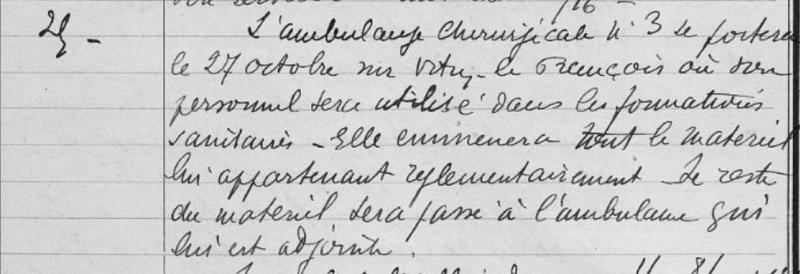 25 - L'ambulance chirurgicale N° 3 se portera
le 27 octobre sur Vitry-le François où son
personnel sera utilisé dans les formations
sanitaires - Elle emmenera tout le materiel
lui appartenant reglementairement Le reste
du materiel sera passé à l'ambulance qui
lui est adjointe.